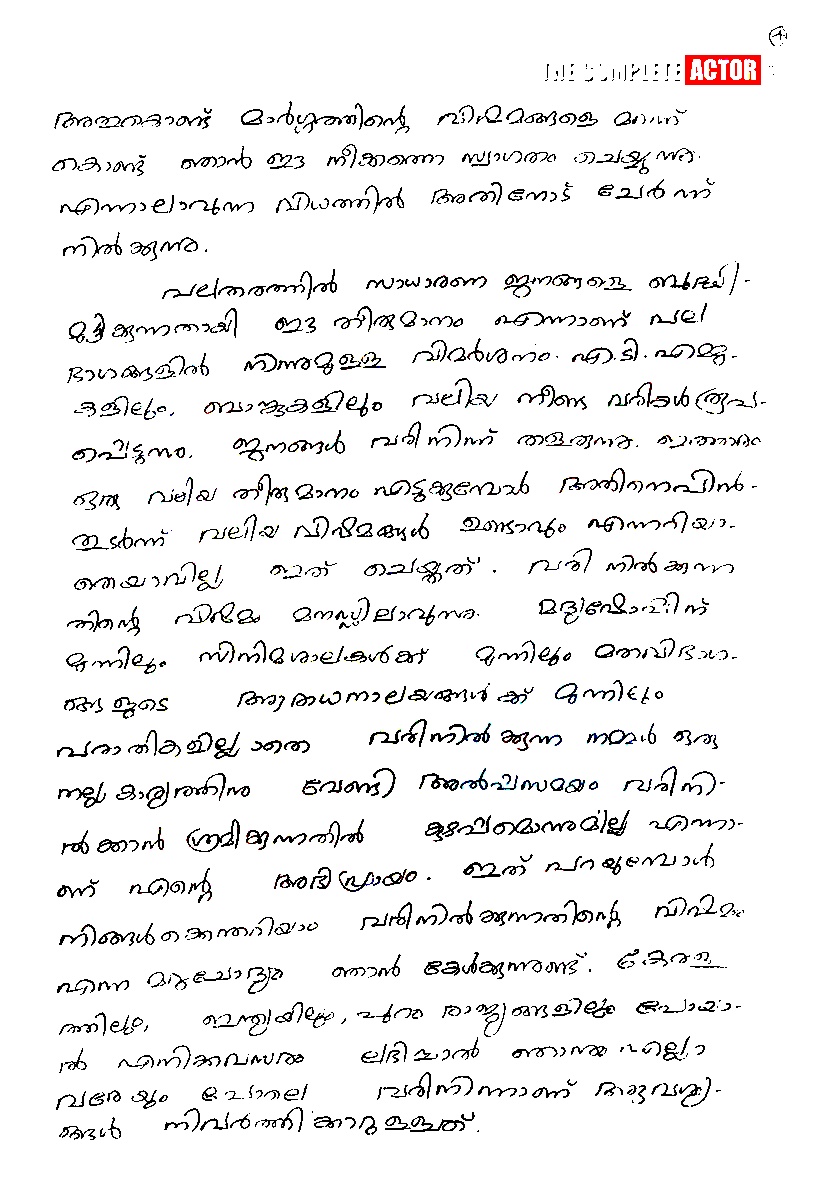 THE COMPLETE ACTOR
അതുകൊണ്ട് മാർഗ്ഗത്തിന്റെ വിഷമങ്ങളെ മറന്ന്
കൊണ്ട് ഞാൻ ഈ നീക്കത്തെ സ്വാഗതം ചെയ്യുന്നു.
എന്നാലാവുന്ന വിധത്തിൽ അതിനോട് ചേർന്ന്
നിൽക്കുന്നു.
പലതരത്തിൽ സാധാരണ ജനങ്ങളെ ബുദ്ധി-
മുട്ടിക്കുന്നതായി ഈ തീരുമാനം എന്നാണ് പല
ഭാഗങ്ങളിൽ നിന്നുമുളള വിമർശനം. എ.ടി.എമ്മു-
കളിലും, ബാങ്കുകളിലും വലിയ നീണ്ട വരികൾ രൂപ-
പ്പെട്ടുന്നു. ജനങ്ങൾ വരി നിന്ന് തളരുന്നു. ഇത്തരം
ഒരു വലിയ തീരുമാനം എടുക്കുമ്പോൾ അതിനെപിൻ-
തുടർന്ന് വലിയ വിഷമങ്ങൾ ഉണ്ടാവും എന്നറിയാ-
തെയാവില്ല ഇത് ചെയ്തത്. വരി നിൽക്കുന്ന
തിന്റെ വിഷമം മനസ്സിലാവുന്നു. മദ്യഷോപ്പിന്
മുന്നിലും സിനിമശാലകൾക്ക് മുന്നിലും മതവിഭാഗ-
ങ്ങളുടെ ആരാധനാലയങ്ങൾക്ക് മുന്നിലും
പരാതികളില്ലാതെ വരിനിൽക്കുന്ന നമ്മൾ ഒരു
നല്ല കാര്യത്തിനു വേണ്ടി അൽപസമയം വരിനി-
ൽക്കാൻ ശ്രമിക്കുന്നതിൽ കുഴപ്പമൊന്നുമില്ല എന്നാ-
ണ് എന്റെ അഭിപ്രായം. ഇത് പറയുമ്പോൾ
നിങ്ങൾക്കെന്തറിയാം വരിനിൽക്കുന്നതിന്റെ വിഷമം
എന്ന മറുചോദ്യം ഞാൻ കേൾക്കുന്നുണ്ട്. കേരള
ത്തിലും, ഇന്ത്യയിലും, പുറം രാജ്യങ്ങളിലും പോയാ-
ൽ എനിക്കവസരം ലഭിച്ചാൽ ഞാനും എല്ലാ
വരേയും പോലെ വരിനിന്നാണ് ആവശ്യ-
ങ്ങൾ നിവർത്തിക്കാറുളളത്.